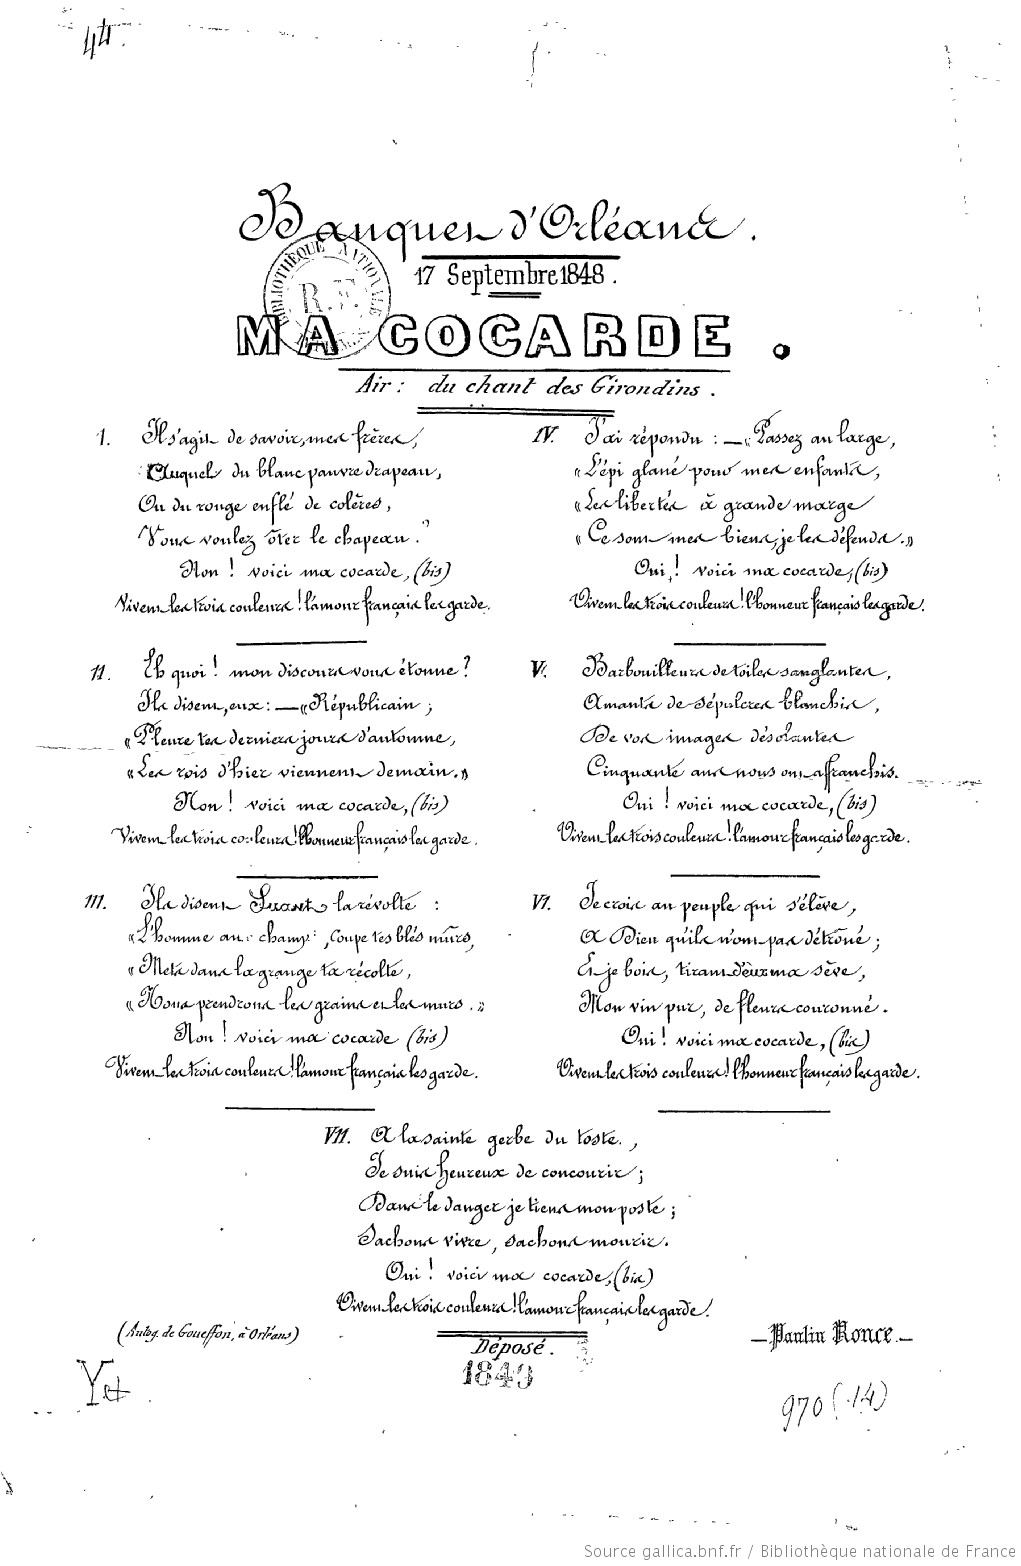 44.
Banquet d'Orléans.
17 Septembre 1848.
BIBLIOTHÈQUE NATIONALE
R.F.
MA COCARDE.
Air : du chant des Girondins.
I. Il s'agit de savoir, mes frères,
Auquel du blanc pauvre drapeau,
Ou du rouge enflé de colères,
Vous voulez ôter le chapeau ?
Non ! voici ma cocarde, (bis)
Vivent les trois couleurs ! l'amour français les garde.
II. Eh quoi ! mon discours vous étonne ?
Ils disent, eux : — « Républicain ;
« Pleure tes derniers jours d'automne,
« Les rois d'hier viennent demain. »
Non ! voici ma cocarde, (bis)
Vivent les trois couleurs ! l'honneur français les garde.
III. Ils disent la révolte :
« L'homme aux champs, coupe tes blés mûrs,
« Mets dans la grange ta récolte,
« Nous prendrons les grains et les murs. »
Non ! voici ma cocarde (bis)
Vivent les trois couleurs ! l'amour français les garde.
IV. J'ai répondu : — « Passez au large,
« L'épi glané pour mes enfants,
« Les libertés à grande marge
« Ce sont mes biens, je les défends. »
Oui ! voici ma cocarde, (bis)
Vivent les trois couleurs ! l'honneur français les garde.
V. Barbouilleurs de toiles sanglantes,
Amants de sépulcres blanchis,
De vos images désolantes
Cinquante ans nous ont affranchis.
Oui ! voici ma cocarde, (bis)
Vivent les trois couleurs ! l'amour français les garde.
VI. Je crois au peuple qui s'élève,
A Dieu qu'ils n'ont pas détrôné ;
Et je bois, tirant d'eux ma sève,
Mon vin pur, de fleurs couronné.
Oui ! voici ma cocarde, (bis)
Vivent les trois couleurs ! l'honneur français les garde.
VII. A la sainte gerbe du toste,
Je suis heureux de concourir ;
Dans le danger je tiens mon poste ;
Sachons vivre, sachons mourir.
Oui ! voici ma cocarde, (bis)
Vivent les trois couleurs ! l'amour français les garde !
(Autog. de Goueffon, à Orléans)
— Paulin Ronce. —
Déposé.
1849
Ye
970 (14)
Source gallica.bnf.fr / Bibliothèque nationale de France